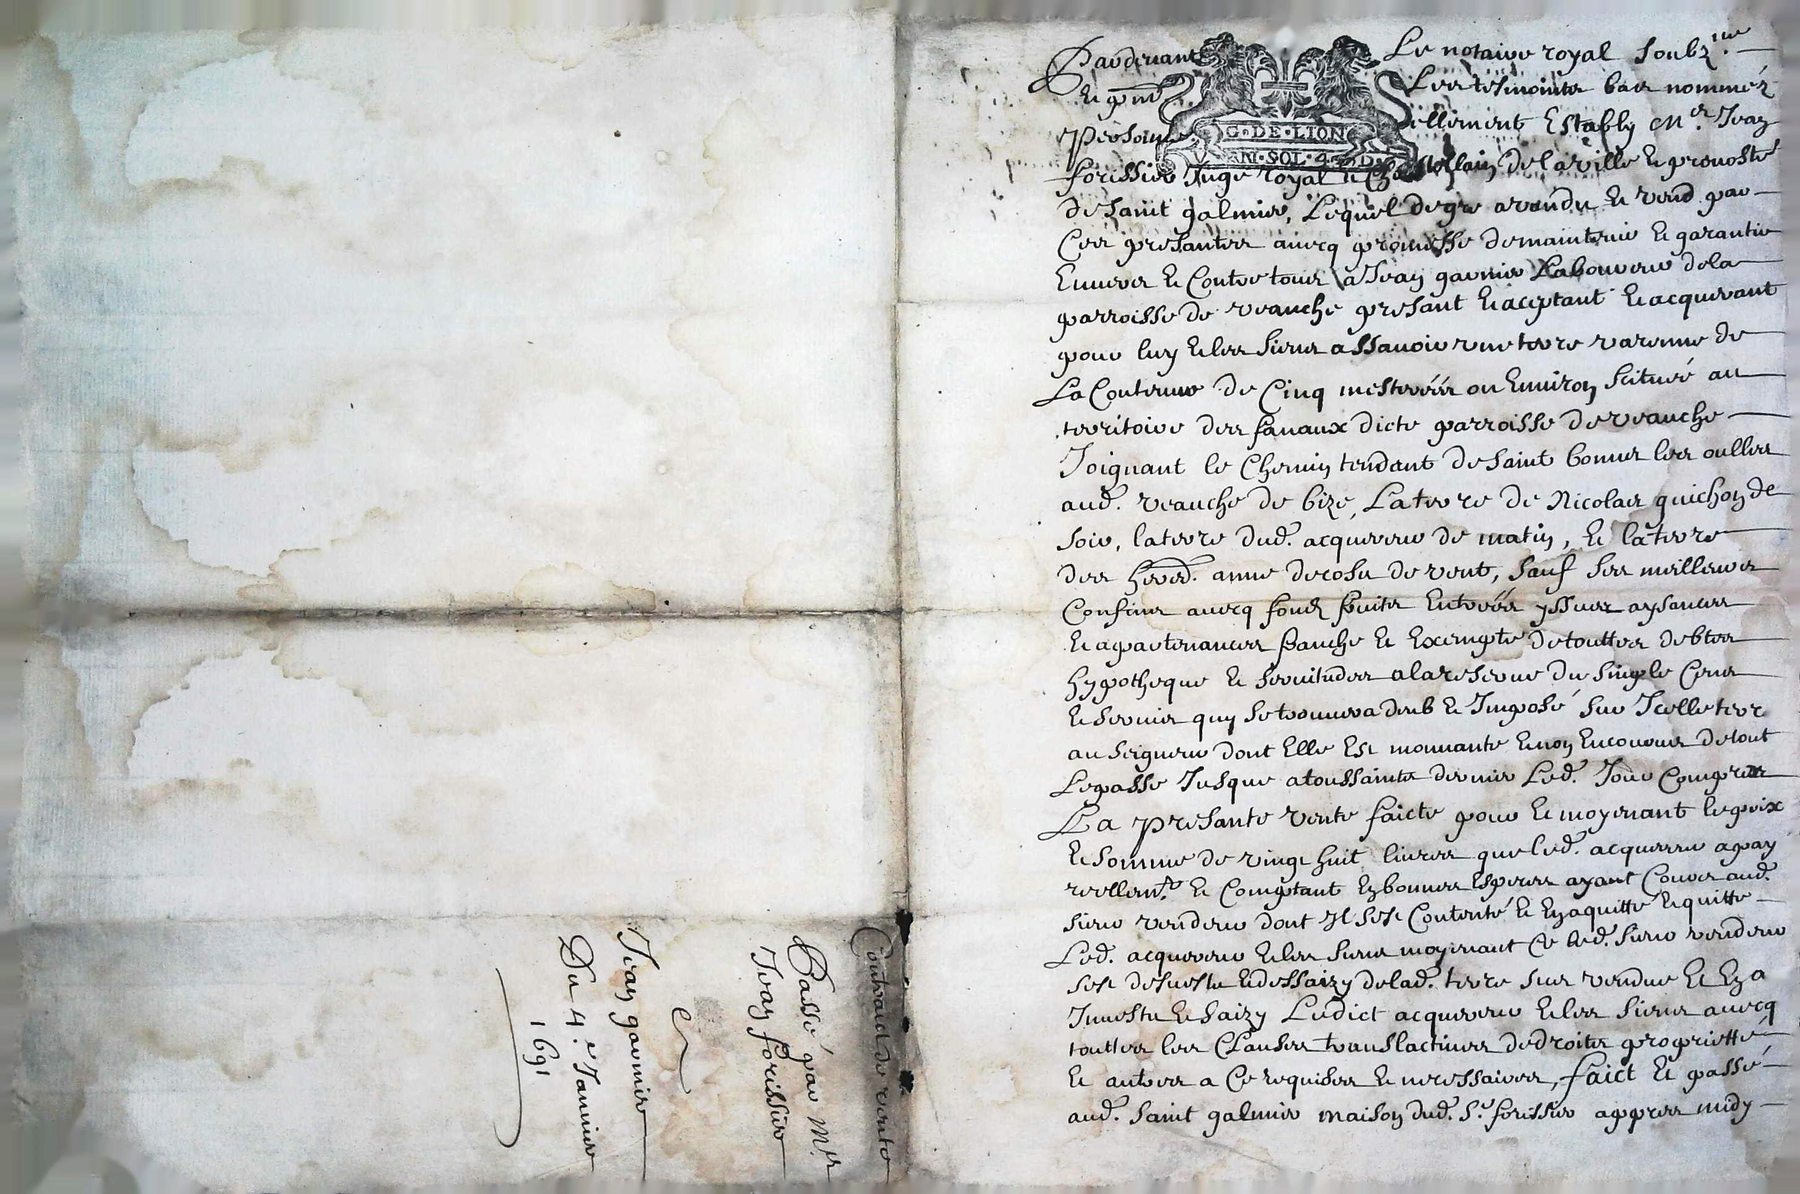 Contract de vente
Passé par Mr
Jean forissier
et
Jean garnier
Du 4.e Janvier
1691
Pardevant Le notaire royal soubz.ne
G·DE·LION
SOL·4
Et pnt Les tesmointz bas nommés
Personnellement Estably Mr. Jean
forissier Juge royal et Chastellain de la ville et prevosté
de saint galmier, Lequel de gre a vendu et vend par
Ces presantes avecq promesse de maintenir et garantir
Envers et Contre tous a Jean garnier Laboureur de la
parroisse de veauche presant et aceptant et acquerant
pour luy et les siens assavoir une terre varenne de
La Contenue de Cinq mesterées ou Environ scituée au
territoire des fanaux dicte parroisse de veauche
Joignant le Chemin tendant de saint bonnet les oulles
aud. veauche de bize, La terre de Nicolas guichon de
soir, la terre dud. acquereur de matin, et la terre
des hered. anne decoste de vent, sauf ses meilleurs
Confins avecq fondz fruitz Entrées yssues aysances
et apartenances franche et Exempte de touttes debtes
hypotheque et servitudes a la reserve du simple Cens
et servis quy se trouvera deub et Imposé sur Icelle terre
au seigneur dont Elle Est mouvante et non Encourus de tout
Le passe Jusque a toussaintz dernier Led. Jour Compris
La presante vente faicte pour et moyenant le prix
et somme de vingt huit livres que led. acquereur a pay
reellemt. et Comptant En bonnes Especes ayant Cours aud.
sieur vendeur dont Il s'est Contenté et En a quitté et quitte
Led. acquereur et les siens moyenant Ce led. sieur vendeur
s'est desvestu et dessaizy de lad. terre sus vendue et En a
Investu et saizy Ledict acquereur et les siens avecq
touttes les Clauses translactives de droitz proprietté
et autres a Ce requises et necessaires, faict et passé
aud. saint galmier maison dud. Sr. forissier appres midy